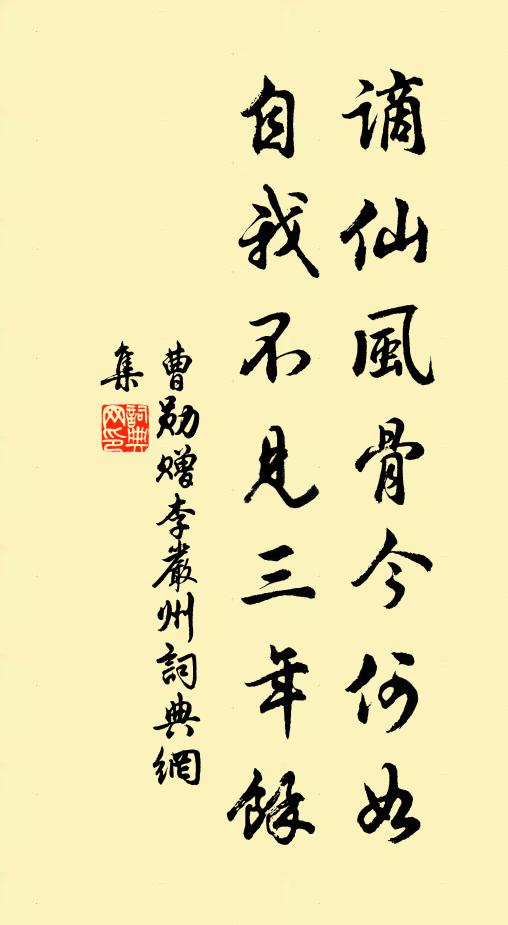 謫仙風骨今何如
自我不見三年餘
曹勛贈李嚴州詞典網
集
詞典
网印